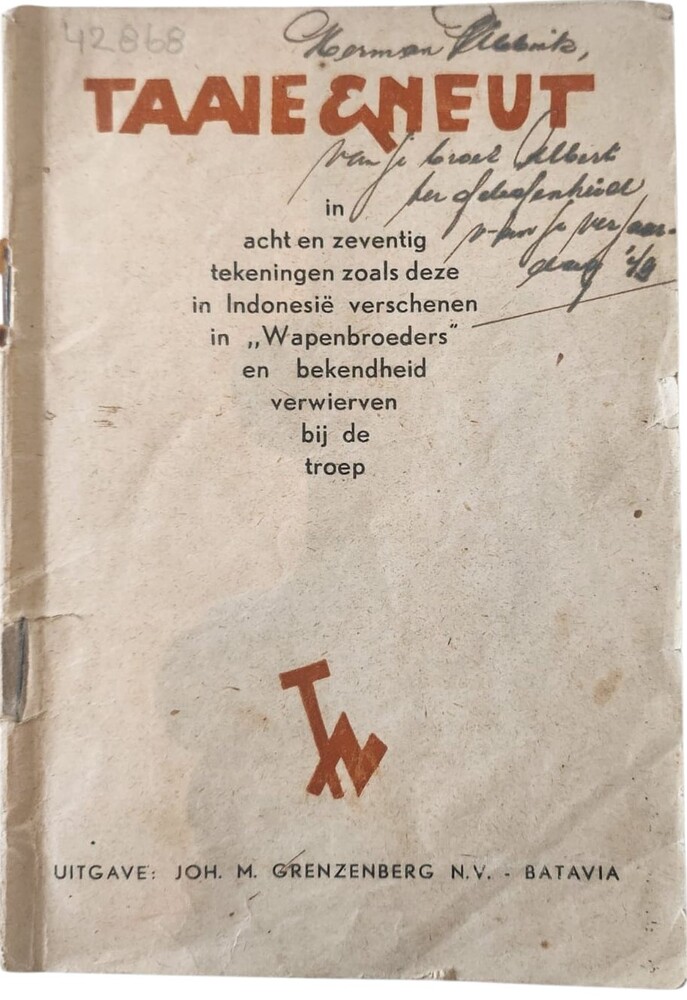 42868
Herman
TAAIE & NEUT
van je broer Albert
ter gelegenheid
van je verjaar-
dag '49
in
acht en zeventig
tekeningen zoals deze
in Indonesië verschenen
in „Wapenbroeders"
en bekendheid
verwierven
bij de
troep
TN
UITGAVE: JOH. M. GRENZENBERG N.V. - BATAVIA